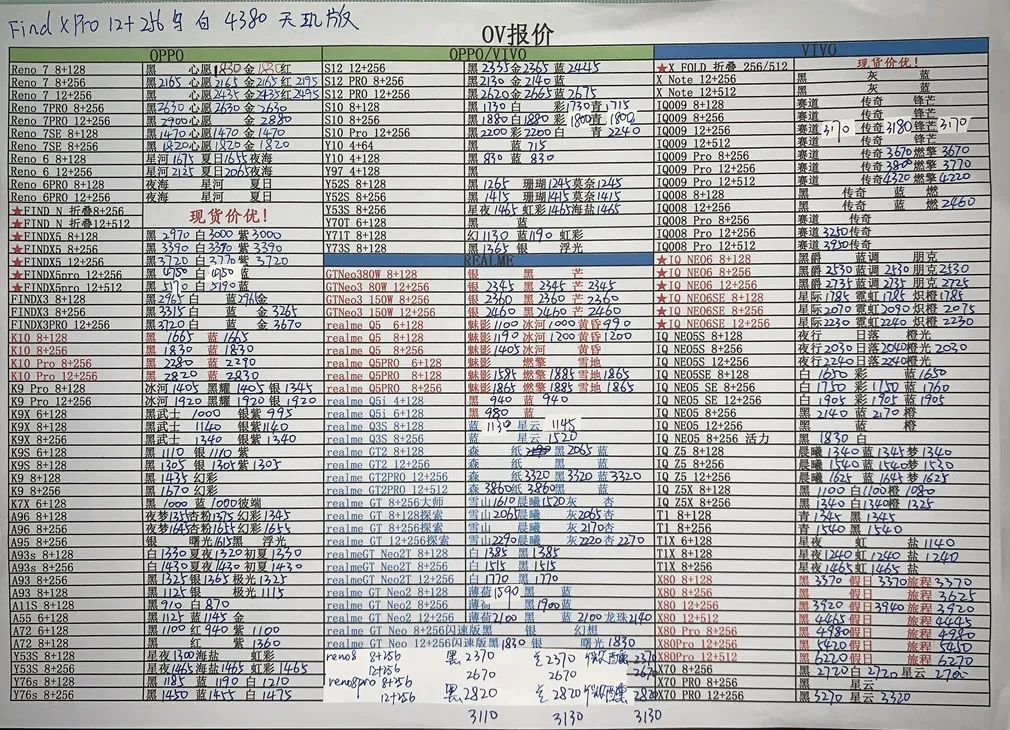 Find X Pro 12+256 黑 白 4380 天玑版
OV报价
OPPO
Reno 7 8+128 黑 心愿1830金 1830红
Reno 7 8+256 黑2165 心愿 2165金 2165红 2195
Reno 7 12+256 黑 心愿2435金2435红2495
Reno 7PRO 8+256 黑2630心愿2630金2630
Reno 7PRO 12+256 黑2900心愿 金 2880
Reno 7SE 8+128 黑1470心愿1470金1470
Reno 7SE 8+256 黑1820心愿1820金1820
Reno 6 8+128 星河1675 夏日1655夜海
Reno 6 12+256 星河2125 夏日2065夜海
Reno 6PRO 8+128 夜海 星河 夏日
Reno 6PRO 12+256 夜海 星河 夏日
★FIND N 折叠8+256 现货价优!
★FIND N 折叠12+512
★FINDX5 8+128 黑2970白3000紫3000
★FINDX5 8+256 黑3390白3390紫3390
★FINDX5 12+256 黑3720白3770紫3720
★FINDX5pro 12+256 黑 白 蓝
★FINDX5pro 12+512 黑 白5190蓝
FINDX3 8+128 黑2965白 蓝2965金
FINDX3 8+256 黑3315白 蓝 金3265
FINDX3PRO 12+256 黑3720白 蓝 金 3670
K10 8+128 黑1665 蓝1665
K10 8+256 黑1830 蓝1830
K10 Pro 8+256 黑2280 蓝2290
K10 Pro 12+256 黑2820 蓝2830
K9 Pro 8+128 冰河1405黑耀1405银1345
K9 Pro 12+256 冰河1920黑耀1920银1920
K9X 6+128 黑武士 1000 银紫 995
K9X 8+128 黑武士 1140 银紫1140
K9X 8+256 黑武士 1340 银紫 1340
K9S 6+128 黑1110 银1110紫
K9S 8+128 黑1305 银1305紫1305
K9 8+128 黑1435幻彩
K9 8+256 黑1670幻彩
K7X 6+128 黑1000蓝1000彼端
A96 8+128 夜梦1345杏粉1375幻彩1345
A96 8+256 夜梦1645杏粉1655幻彩1655
A95 8+256 银 曙光1615黑 浮光
A93s 8+128 白1330夏夜1320初夏1330
A93s 8+256 白1430夏夜1430初夏1430
A93 8+256 黑1325银1365极光1325
A93 8+128 黑1125银 极光1115
A11S 8+128 黑910白870
A55 6+128 黑1125蓝1145金
A72 6+128 黑1100红940紫1100
A72 8+128 黑 红 紫 1360
Y53S 8+128 星夜1300海盐 虹彩
Y53S 8+256 星夜1465海盐1465虹彩1465
Y76s 8+128 黑1185蓝1190白1210
Y76s 8+256 黑1450蓝1455白1475
OPPO/VIVO
S12 12+256 黑2335金2365蓝2445
S12 PRO 8+256 黑2130金2140蓝
S12 PRO 12+256 黑2620金2665蓝2675
S10 8+128 黑1730白 彩1730青1715
S10 8+256 黑1880白1880彩1800青1800
S10 Pro 12+256 黑2200彩2200白 青2240
Y10 4+64 黑 蓝 715
Y10 4+128 黑830蓝830
Y97 4+128 黑
Y52S 8+128 黑1265 珊瑚1245莫奈1245
Y52S 8+256 黑1415 珊瑚1415莫奈1415
Y53S 8+256 星夜1465虹彩1465海盐1465
Y70T 6+128 黑 蓝
Y71T 8+128 幻1130蓝1190虹彩
Y73S 8+128 黑1365银 浮光
REALME
GTNeo380W 8+128 银 黑 芒
GTNeo3 80W 12+256 银2345黑2345芒2345
GTNeo3 150W 8+256 银2360黑2360芒2360
GTNeo3 150W 12+256 银2460黑2460芒2460
realme Q5 6+128 魅影1100冰河1000黄昏990
realme Q5 8+128 魅影1190冰河1200黄昏1200
realme Q5 8+256 魅影1405冰河 黄昏
realme Q5PRO 6+128 魅影 燃擎 雪地
realme Q5PRO 8+128 魅影1585燃擎1885雪地1865
realme Q5PRO 8+256 魅影1865燃擎1885雪地1865
realme Q5i 4+128 黑 940 蓝 940
realme Q5i 6+128 黑 980 蓝
realme Q3S 8+128 蓝 1130 星云 1145
realme Q3S 8+256 蓝 星云1520
realme GT2 8+128 森 纸 黑2065蓝
realme GT2 12+256 森 纸 黑 蓝
realme GT2PRO 12+256 森 纸3320黑3320蓝3320
realme GT2PRO 12+512 森3860纸3860黑 蓝
realme GT 8+256大师 雪山1610晨曦1520灰 杏
realme GT 8+128探索 雪山2065晨曦 灰2065杏
realme GT 8+256探索 雪山 晨曦 灰2170杏
realme GT 12+256探索 雪山2290晨曦 灰2220杏2270
realmeGT Neo2T 8+128 白1385黑1385
realmeGT Neo2T 8+256 白1515黑1515
realmeGT Neo2T 12+256 白1770黑1770
realme GT Neo2 8+128 薄荷1590黑 蓝
realme GT Neo2 8+256 薄荷 黑1900蓝
realme GT Neo2 12+256 薄荷2100黑 蓝2100龙珠2140
realme GT Neo 8+256闪速版黑 银 幻想
realme GT Neo 12+256闪速版黑1830银 曙光1830
reno8 8+256 黑2370 2370 2370
12+256 2670 2670 2670
reno8pro 8+256 黑2820 2820 2820
12+256 3110 3130 3130
VIVO
★X FOLD 折叠 256/512 现货价优!
X Note 8+256 黑 灰 蓝
X Note 12+512 黑 灰 蓝
IQOO9 8+128 赛道 传奇 锋芒
IQOO9 8+256 赛道 传奇 锋芒
IQOO9 12+256 赛道3170传奇3180锋芒3170
IQOO9 12+512 赛道 传奇 锋芒
IQOO9 Pro 8+256 赛道 传奇3670燃擎3670
IQOO9 Pro 12+256 赛道 传奇3800燃擎3770
IQOO9 Pro 12+512 赛道 传奇4320燃擎4220
IQOO8 8+128 黑 传奇 蓝 燃
IQOO8 12+256 黑 传奇 蓝 燃2460
IQOO8 Pro 8+256 赛道 传奇
IQOO8 Pro 12+256 赛道3250传奇
IQOO8 Pro 12+512 赛道3950传奇
★IQ NEO6 8+128 黑爵 蓝调 朋克
★IQ NEO6 8+256 黑爵2530蓝调2530朋克2530
★IQ NEO6 12+256 黑爵2735蓝调2735朋克2725
★IQ NEO6SE 8+128 星际1785霓虹1785炽橙1785
★IQ NEO6SE 8+256 星际2070霓虹2090炽橙2075
★IQ NEO6SE 12+256 星际2230霓虹2240炽橙2230
IQ NEO5S 8+128 夜行 日落 橙光
IQ NEO5S 8+256 夜行2030日落2040橙光2030
IQ NEO5S 12+256 夜行2240日落2240橙光
IQ NEO5SE 8+128 白1650彩 蓝1650
IQ NEO5 SE 8+256 白1750彩1750蓝1760
IQ NEO5 SE 12+256 白1905彩1905蓝1905
IQ NEO5 8+256 黑2140蓝2170橙
IQ NEO5 12+256 黑 蓝 橙
IQ NEO5 8+256 活力 黑1830白
IQ Z5 8+128 晨曦1340蓝1345梦1340
IQ Z5 8+256 晨曦1540蓝1540梦1530
IQ Z5 12+256 晨曦1625蓝1645梦1625
IQ Z5X 8+128 黑1100白1100橙1080
IQ Z5X 8+256 黑1340白1340橙1325
T1 8+128 青1345黑1345
T1 8+256 青1540黑1540
T1X 6+128 星夜 虹 盐1140
T1X 8+128 星夜1240虹1240盐1240
T1X 8+256 星夜1465虹1465盐
X80 8+128 黑3370假日3370旅程3370
X80 8+256 黑 假日 旅程3625
X80 12+256 黑3920假日3940旅程3920
X80 12+512 黑4465假日 旅程4445
X80 Pro 8+256 黑4980假日 旅程4980
X80Pro 12+256 黑5420假日 旅程5450
X80Pro 12+512 黑6220假日 旅程6270
X70 8+256 黑2720白2720星云2700
X70 PRO 8+256 黑 星云
X70 PRO 12+256 黑3270星云3320